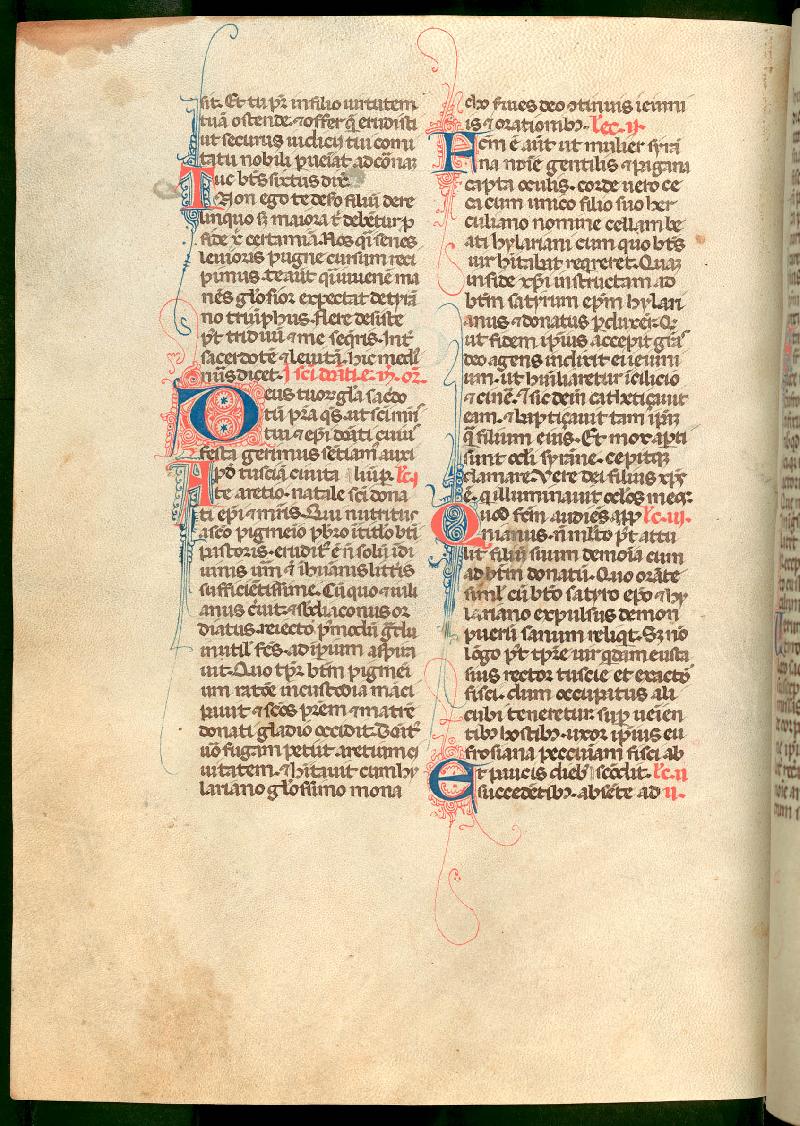 sit. Et tu pr̄ in filio uirtutem
tuā ostende. ⁊ offer q̄ erudisti
ut securus iudicij tui comi
tatū nobili pueiat ad conā
Tuc bt̄s sixtus dix̄.
Non ego te desero filiū dere
linquo sꝫ maiora t̄ debētur p
fide x̄ certamīa. Nos q̄ senes
leuioris pugne cursum reci
pimus. te aūt q̄ iuuenē ma
nēt glosior expectat de tyrā
no triūphus. flere desiste
p̄t triduū me seq̄ris. Int̄
sacerdotē ⁊ leuitā. hic medi
nūs dicet. I sc̄i donati. e. ⁊ m̄. or̄.
Deus tuor gl̄a sacdo
tū p̄ra q̄s. ut sc̄i mr̄is
tui ⁊ ep̄i donati cuiꝰ
festa gerimus sētiam auxi
Apd̄ tusciā ciuita liū p. lc̄ i
te aretio. natale sc̄i dona
ti ep̄i ⁊ mr̄is. Qui nutritur
a sc̄o pigmeio pb̄ro ī titl̄o bt̄i
pastoris. erudit̄ ē n̄ solū ī di
uinis uerū ⁊ ī humanis litt̄is
sufficiētissime. Cū quo ⁊ iuli
anus ērat. ⁊ sbdiaconus or
diatus. reiecto p̄modū
mutil̄ fc̄s. ad ip̄ium aspira
uit. Quo tp̄r bt̄m pigmei
um ratōe in custodia māci
pauit ⁊ sc̄os p̄rem ⁊ matrē
donati gladio occidit. Donat̄
uō fugam petiit aretium ci
uitatem. ⁊ hītauit cum hy
lariano gl̄osissimo mona
cho seruies deo ⁊tinuis ieiuni
is ⁊ oratioībꝫ. lec. ij.
Fcm̄ ē aūt ut mulier syri
na noīe gentilis ⁊ pagana
capta oculis. corde uero ce
ca cum unico filio suo her
culiano nomine cellam be
ati hylariani cum quo bt̄s
uir hītabat reqreret. Qua
in fide xp̄i instructam ad
bt̄m satyrum ep̄m hylari
anus ⁊ donatus pduxer̄. Q.
ut fidem ip̄ius accepit grās
deo agens indixit ei ieiuni
um. ut hūiliaretur ī cilicio
⁊ cinē. ⁊ sic dein cathezicauit
eam. ⁊ baptizauit tam ip̄m
q̄ filium eius. Et mox apti
sunt oc̄li syrine. ⁊ cepit
clamare. Vere dei filius xp̄s
ē. q̄ illuminauit oc̄los meos.
Quod fcm̄ audiēs app lc̄. iij.
nianus. n̄ mlto p̄t attu
lit filiū suum demoīa cum
ad bt̄m donatū. Quo orāte
siml̄ cū bt̄o satyro ep̄o ⁊ hy
lariano expulsus demon
puerū sanum reliqt. Sꝫ nō
lōgo p̄t tp̄re uir qdam eusta
sius rector tuscie et exactor
fisci. dum occupatus ali
cubi teneretur. sup ueien
tibꝫ hostibꝫ. uxor ip̄ius eu
frosiana pecuniam fisci ab
Et paucis diebꝫ scōdit. lc̄. ii
succedētibꝫ. absēte ad ii.